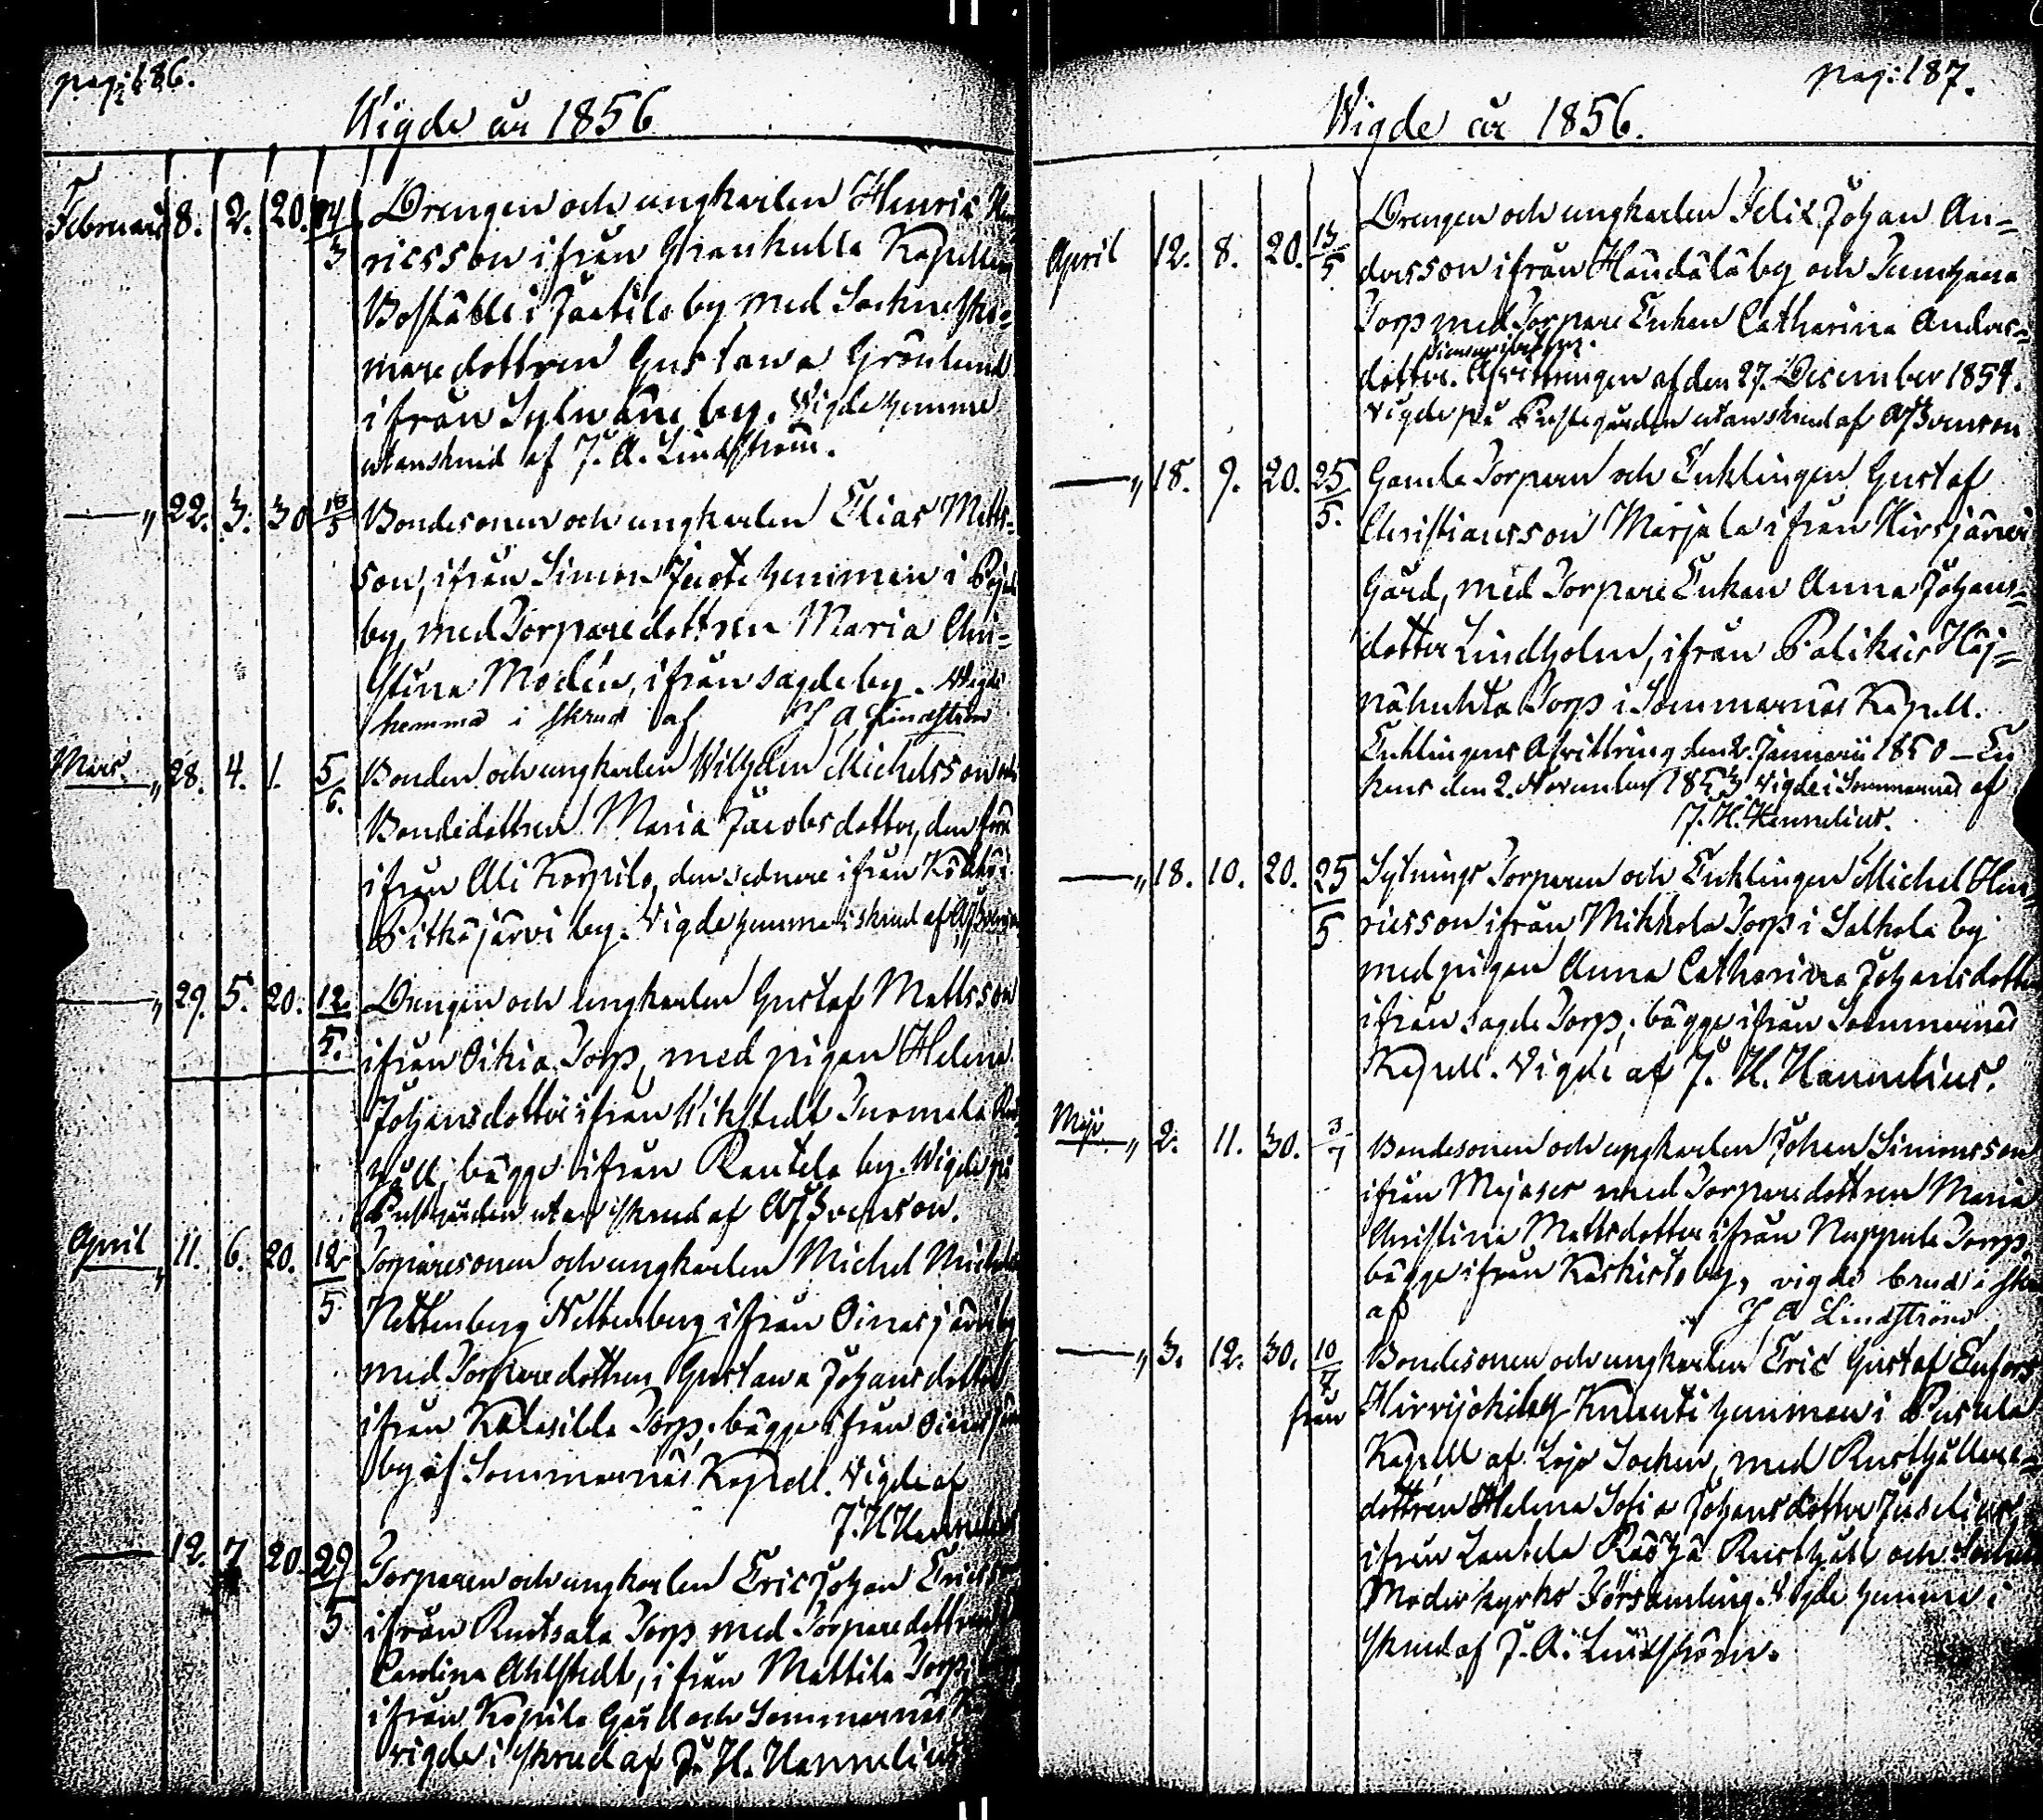 pag: 186.
Wigde år 1856
Februari 8. 2. 20. Drengen och ungkarlen Henric
ricsson ifrån Kapellans
Boställe i Jaatila by med Sockneskö=
mare dottren Gustava Grönlund
ifrån Sylvänä by. Wigde hemma
utan skrud af J. A. Lindström.
— „ 22. 3. 30 18/5 Bondesonen och ungkarlen Elias Matts=
son, ifrån Simon hemman i
by, med Torparedottren Maria Chri=
stina Modén, ifrån sagde by. Wigde
hemma i skrud af J A Lindström
Mars. „ 28. 4. 1. 5/6. Bonden och ungkarlen Wilhelm Michelsson och
Bondedottren Maria Jacobsdotter, den förre
ifrån Ali Korpilo, den sednare ifrån
Pitkäjärvi by. Vigde hemma i skrud af
— „ 29. 5. 20. 12/5. Drengen och ungkarlen Gustaf Mattsson
ifrån Oikia Torp, med pigan Helena
Johansdotter ifrån Wikstedt Tuomala
håll, bägge ifrån Rautela by. Wigde på
Prestgården utan skrud af Svenson.
April „ 11. 6. 20. 12/5 Torparesonen och ungkarlen Michel
Nettenberg Nettenberg ifrån Oinasjärvi by
med Torparedottren Gustava Johansdotter
ifrån Kalasilda Torp, bägge ifrån
by af Sommarnäs Kapell. Vigde af
J. H. Hannelius
— 12. 7 20. 29/5 Torparen och ungkarlen Eric Johan
ifrån Ruotsala Torp med Torparedottren
Carolina Ahlstedt, ifrån Mattila Torp,
ifrån Kopila Gård och Sommarnäs
vigde i skrud af J. H. Hannelius
pag: 187.
Wigde år 1856.
April 12. 8. 20. 13/5 Drengen och ungkarlen Felix Johan An=
dersson ifrån Händälä by och
Torp med Torpare Enkan Catharina Anders=
dotter. Afvittringen af den 27. December 1854.
Vigde på Prestegården utan skrud af Svenson
— „ 18. 9. 20. 25/5. Gamla Torparen och Enklingen Gustaf
Christiansson Marjala ifrån Hirsjärvi
Gård, med Torpare Enkan Anna Johans=
dotter Lindholm, ifrån Palikais
Torp i Sommarnäs Kapell.
Enklingens Afvittring den 2. Januarii 1850 – En
kans den 2. November 1853 Vigde i Sommarnäs af
J. H. Hannelius.
— „ 18. 10. 20. 25/5 Sytnings Torparen och Enklingen Michel Hen
ricsson ifrån Mikkola Torp i Salkola by
med pigan Anna Catharina Johansdotter
ifrån sagde Torp; bägge ifrån Sommarnäs
Kapell. Vigde af J. H. Hannelius.
Maji „ 2. 11. 30. 3/7 Bondesonen och ungkarlen Johan Simonsson
ifrån Majaser med Torparedottren Maria
Christina Mattsdotter ifrån Nuppula Torp,
bägge ifrån Kaskisto by, vigde brud i
af J A Lindström
— „ 3. 12. 30. 10/7 Bondesonen och ungkarlen Eric Gustaf Enfors
från Hirvijoki by Knuuti hemman i Pusula
Kapell af Lojo Socken, med Rusthållare=
dottren Helena Sofia Johansdotter Juselius,
ifrån Lautela Rusthåll och
Moderkyrko Församling. Vigde hemma i
skrud af J. A. Lindström.